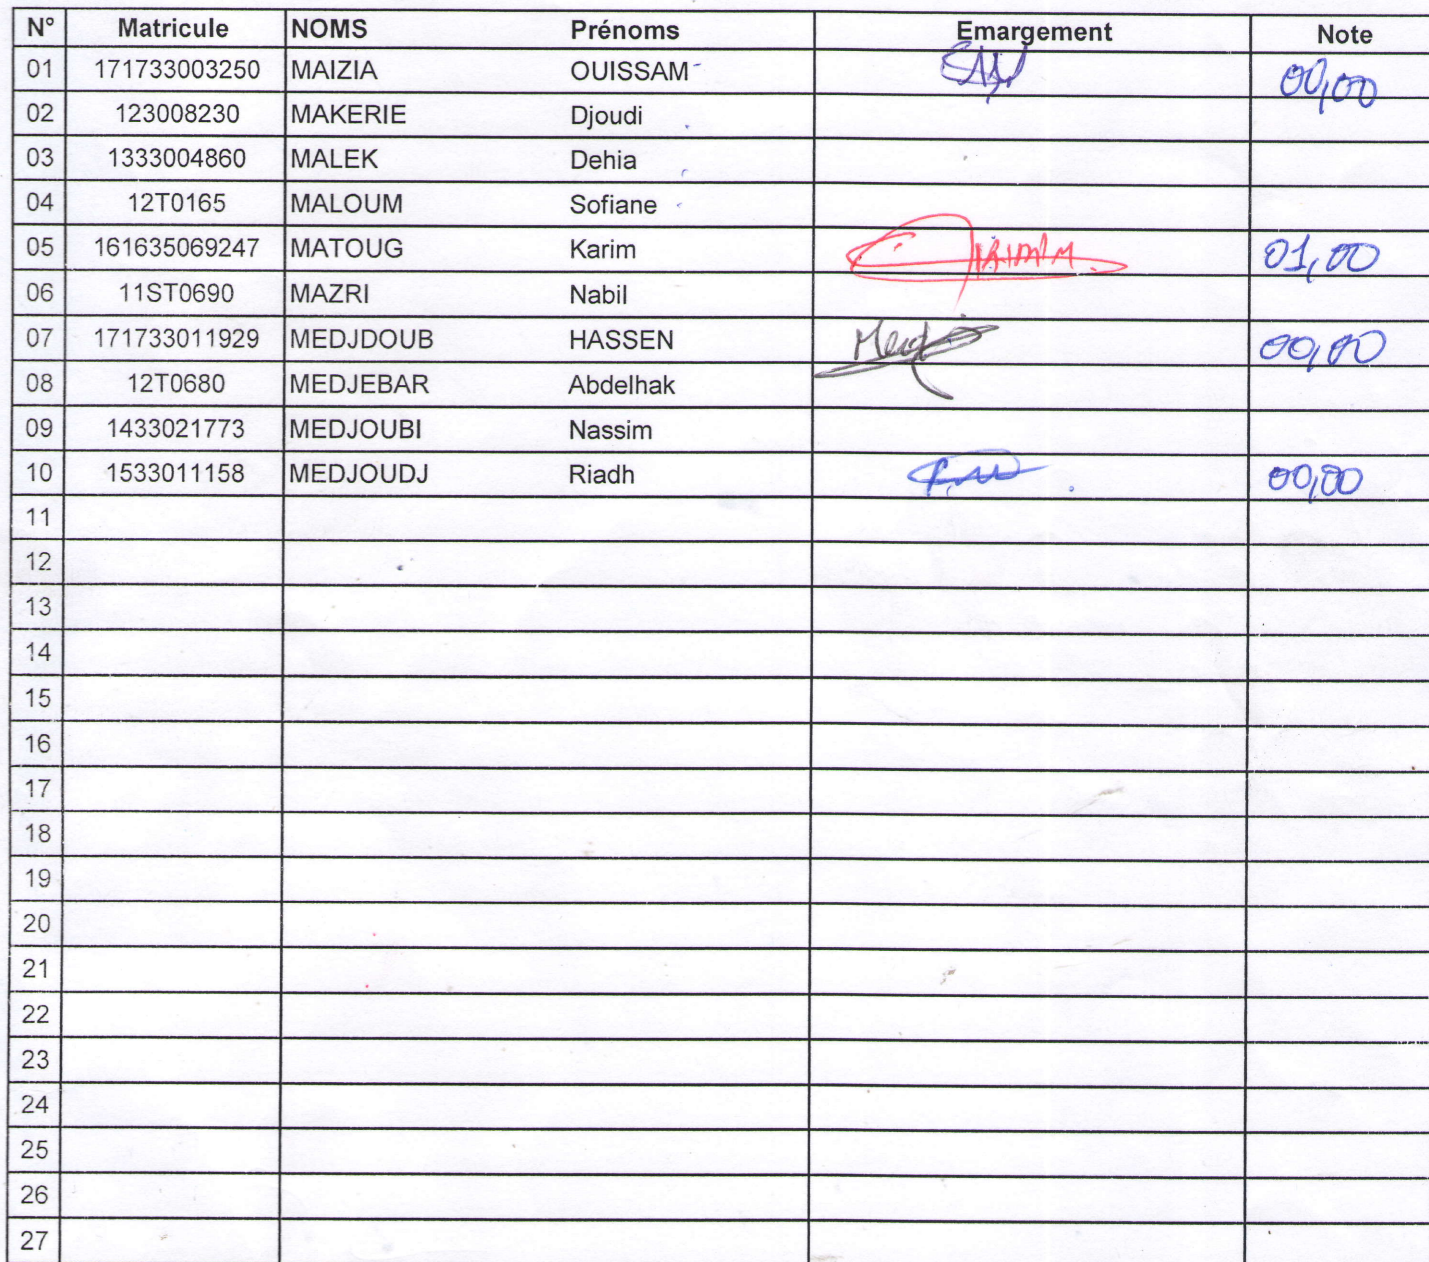 N° Matricule NOMS Prénoms Emargement Note
01 171733003250 MAIZIA OUISSAM 00,00
02 123008230 MAKERIE Djoudi
03 1333004860 MALEK Dehia
04 12T0165 MALOUM Sofiane
05 161635069247 MATOUG Karim 01,00
06 11ST0690 MAZRI Nabil
07 171733011929 MEDJDOUB HASSEN 00,00
08 12T0680 MEDJEBAR Abdelhak
09 1433021773 MEDJOUBI Nassim
10 1533011158 MEDJOUDJ Riadh 00,00
11
12
13
14
15
16
17
18
19
20
21
22
23
24
25
26
27